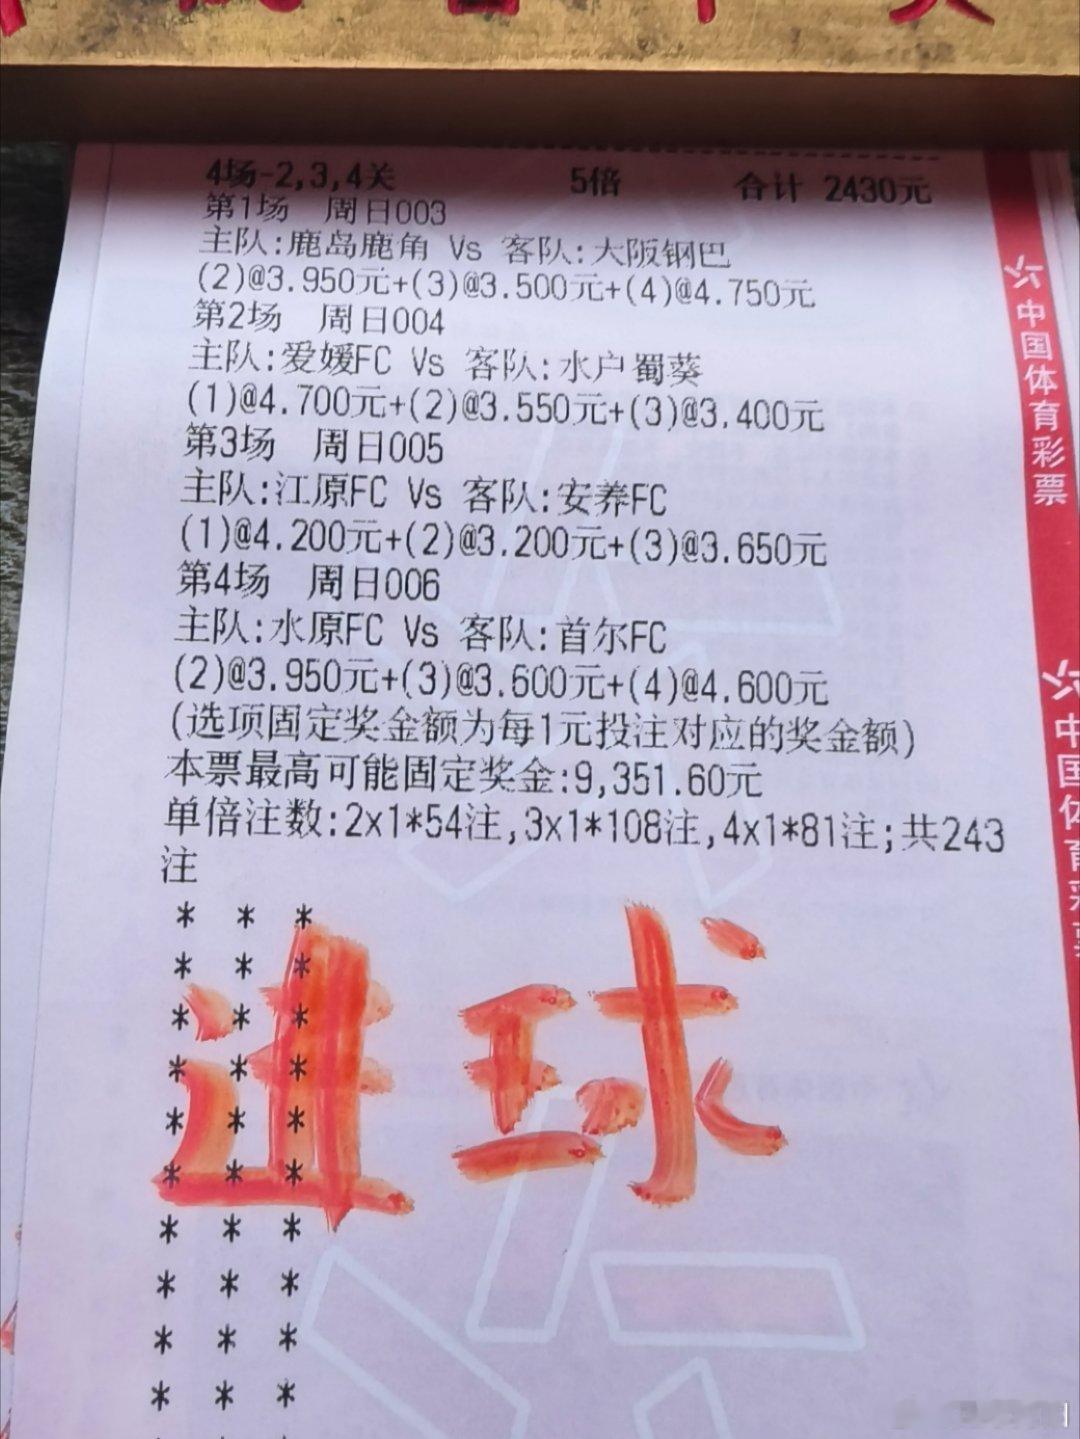 4场-2,3,4关 5倍 合计 2430元
第1场 周日003
主队:鹿岛鹿角 Vs 客队:大阪钢巴
(2)@3.950元+(3)@3.500元+(4)@4.750元
第2场 周日004
主队:爱媛FC Vs 客队:水户蜀葵
(1)@4.700元+(2)@3.550元+(3)@3.400元
第3场 周日005
主队:江原FC Vs 客队:安养FC
(1)@4.200元+(2)@3.200元+(3)@3.650元
第4场 周日006
主队:水原FC Vs 客队:首尔FC
(2)@3.950元+(3)@3.600元+(4)@4.600元
(选项固定奖金额为每1元投注对应的奖金额)
本票最高可能固定奖金:9,351.60元
单倍注数:2x1*54注,3x1*108注,4x1*81注;共243
注
* * *
* * *
* * *
* * *
* * *
* * *
* * *
* * *
* * *
* * *
进球
中国体育彩票
中国体育彩票